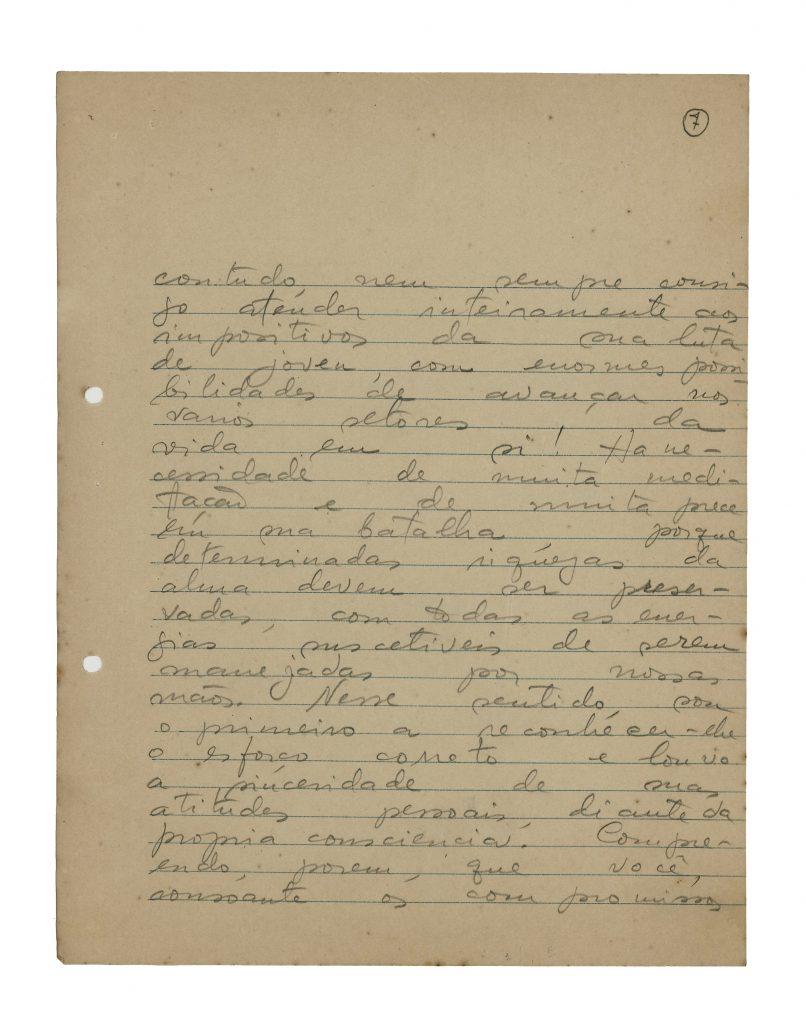 7
contudo, nem sempre consi-
go atender inteiramente aos
impositivos da sua luta
de joven, com enormes possi-
bilidades de avançar nos
varios setores da
vida em si! Ha ne-
cessidade de muita medi-
tacão e de muita prece
em sua batalha porque
determinadas riquezas da
alma devem ser preser-
vadas, com todas as ener-
gias suscetiveis de serem
manejadas por nossas
mãos. Nesse sentido, sou
o primeiro a reconhecer-lhe
o esforço correto e louvo
a sinceridade de suas
atitudes pessoais, diante da
propria consciencia. Compre-
endo, porem, que você,
consoante os compromissos